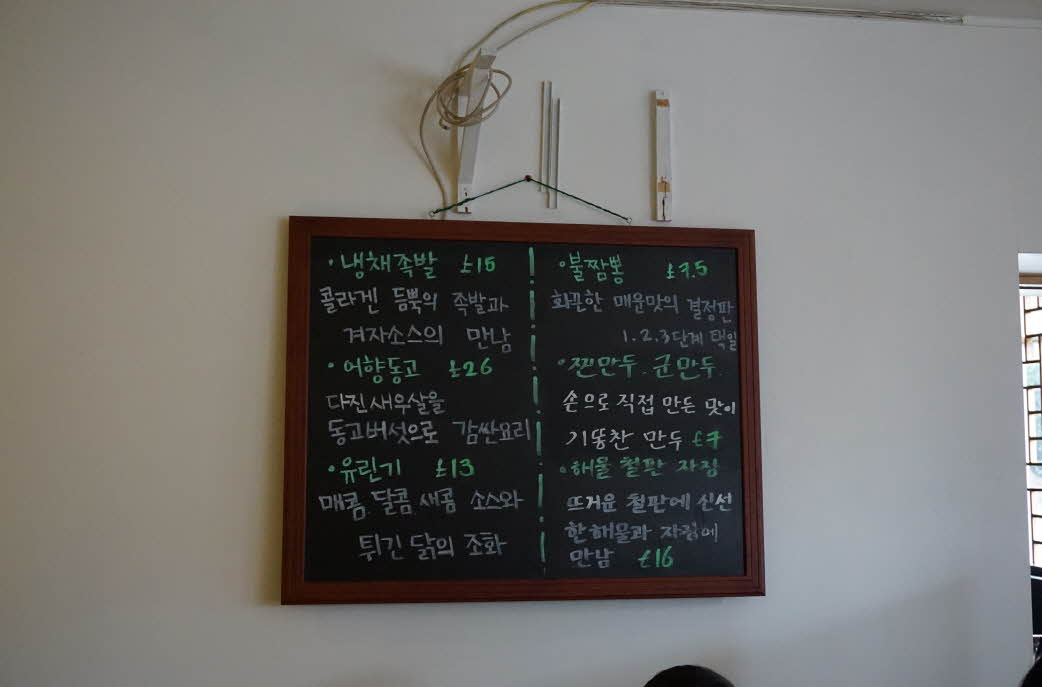 ·냉채족발 £15
콜라겐 듬뿍의 족발과
겨자소스의 만남
·어향동고 £26
다진새우살을
동고버섯으로 감싼요리
·유린기 £13
매콤.달콤.새콤 소스와
튀긴 닭의 조화
·불짬뽕 £7.5
화끈한 매운맛의 결정판
1.2.3단계 택일
·찐만두.군만두.
손으로 직접 만든 맛이
기똥찬 만두 £7
·해물 철판 자장
뜨거운 철판에 신선
한해물과 자장에
만남 £16